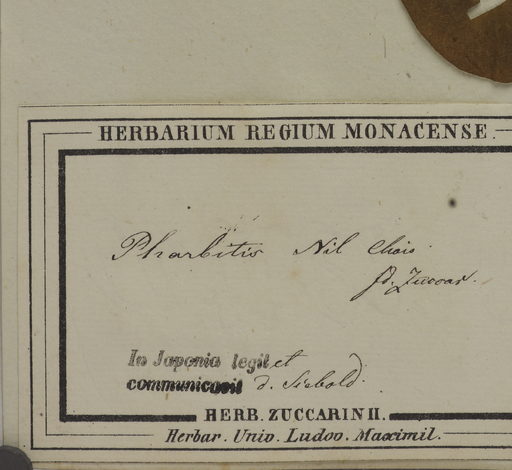 HERBARIUM REGIUM MONACENSE.
Pharbitis Nil Chois
fd. Zuccar.
In Japonia legit et
communicavit d. Siebold.
HERB. ZUCCARINII.
Herbar. Univ. Ludov. Maximil.